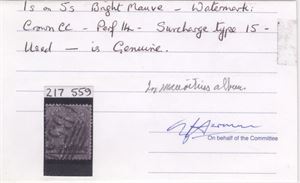 1s on 5s Bright Mauve - Watermark:
Crown CC - Perf 14 - Surcharge type 15 -
Used - is Genuine.
In mauritius album.
217 559
On behalf of the Committee